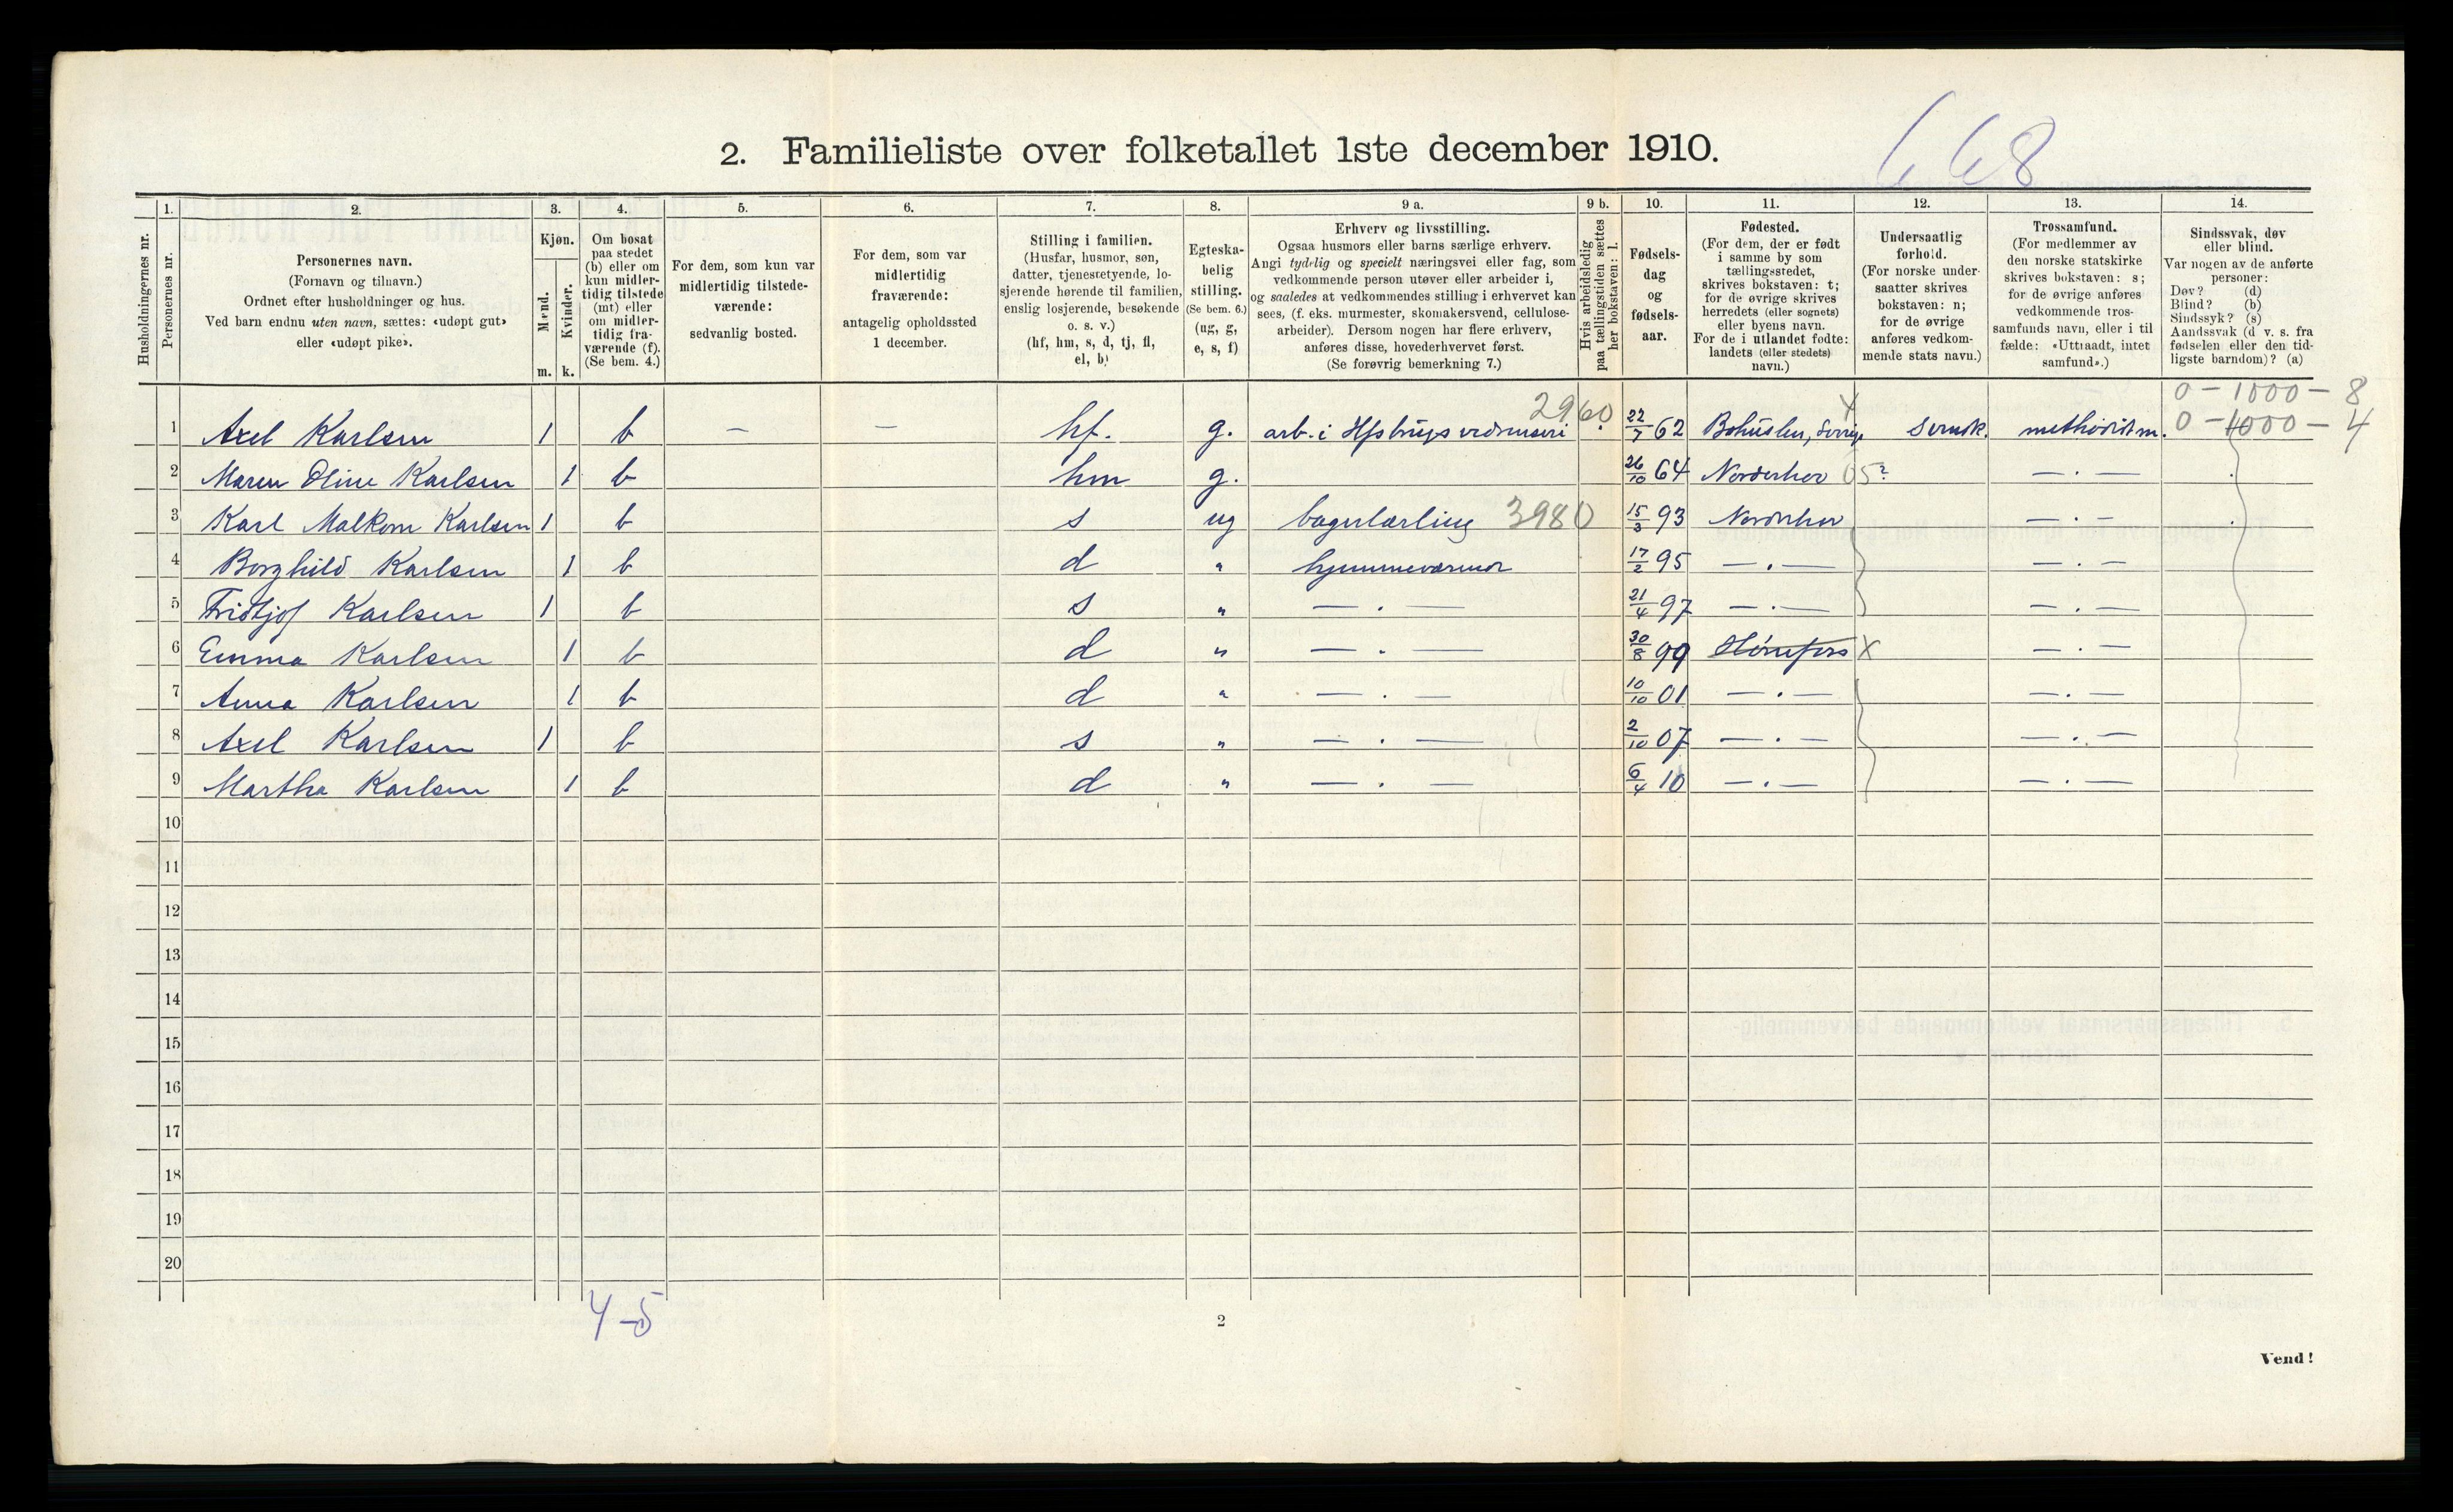 668
2. Familieliste over folketallet 1ste december 1910.
Husholdningernes nr.
1. Personernes nr.
2. Personernes navn.
(Fornavn og tilnavn.)
Ordnet efter husholdninger og hus.
Ved barn endnu uten navn, sættes: «udøpt gut»
eller «udøpt pike».
3. Kjøn.
Mænd. m.
Kvinder. k.
4. Om bosat
paa stedet
(b) eller om
kun midler-
tidig tilstede
(mt) eller
om midler-
tidig fra-
værende (f).
(Se bem. 4.)
5. For dem, som kun var
midlertidig tilstede-
værende:
sedvanlig bosted.
6. For dem, som var
midlertidig
fraværende:
antagelig opholdssted
1 december.
7. Stilling i familien.
(Husfar, husmor, søn,
datter, tjenestetyende, lo-
sjerende hørende til familien,
enslig losjerende, besøkende
o. s. v.)
(hf, hm, s, d, tj, fl,
el, b)
8. Egteska-
belig
stilling.
(Se bem. 6.)
(ug, g,
e, s, f)
9 a. Erhverv og livsstilling.
Ogsaa husmors eller barns særlige erhverv.
Angi tydelig og specielt næringsvei eller fag, som
vedkommende person utøver eller arbeider i,
og saaledes at vedkommendes stilling i erhvervet kan
sees, (f. eks. murmester, skomakersvend, cellulose-
arbeider). Dersom nogen har flere erhverv,
anføres disse, hovederhvervet først.
(Se forøvrig bemerkning 7.)
9 b. Hvis arbeidsledig
paa tællingstiden sættes
her bokstaven: l.
10. Fødsels-
dag
og
fødsels-
aar.
11. Fødested.
(For dem, der er født
i samme by som
tællingsstedet,
skrives bokstaven: t;
for de øvrige skrives
herredets (eller sognets)
eller byens navn.
For de i utlandet fødte:
landets (eller stedets)
navn.)
12. Undersaatlig
forhold.
(For norske under-
saatter skrives
bokstaven: n;
for de øvrige
anføres vedkom-
mende stats navn.)
13. Trossamfund.
(For medlemmer av
den norske statskirke
skrives bokstaven: s;
for de øvrige anføres
vedkommende tros-
samfunds navn, eller i til
fælde: «Uttraadt, intet
samfund».)
14. Sindssvak, døv
eller blind.
Var nogen av de anførte
personer:
Døv? (d)
Blind? (b)
Sindssyk? (s)
Aandssvak (d v. s. fra
fødselen eller den tid-
ligste barndom)? (a)
0 - 1000 - 8
1 Axel Karlsen 1 b - - hf. g. arb. i 2960 22/7 62 Svensk. 0 - 4000 - 4
2 Maren Oline Karlsen 1 b hm g. 26/10 64 Norderhov 05? — . —
3 Karl Malkom Karlsen 1 b s ug bagerlærling 3980 15/3 93 Norderhov — . —
4 Borghild Karlsen 1 b d " hjemmeværende 17/2 95 — . — — . —
5 Fridtjof Karlsen 1 b s " — . — 21/4 97 — . — — . —
6 Emma Karlsen 1 b d " — . — 30/8 99 Hønefoss X — . —
7 Anna Karlsen 1 b d " — . — 10/10 01 — . — — . —
8 Axel Karlsen 1 b s " — . — 2/10 07 — . — — . —
9 Martha Karlsen 1 b d " — . — 6/4 10 — . — — . —
10
11
12
13
14
15
16
17
18
19
20
4-5
2
Vend!